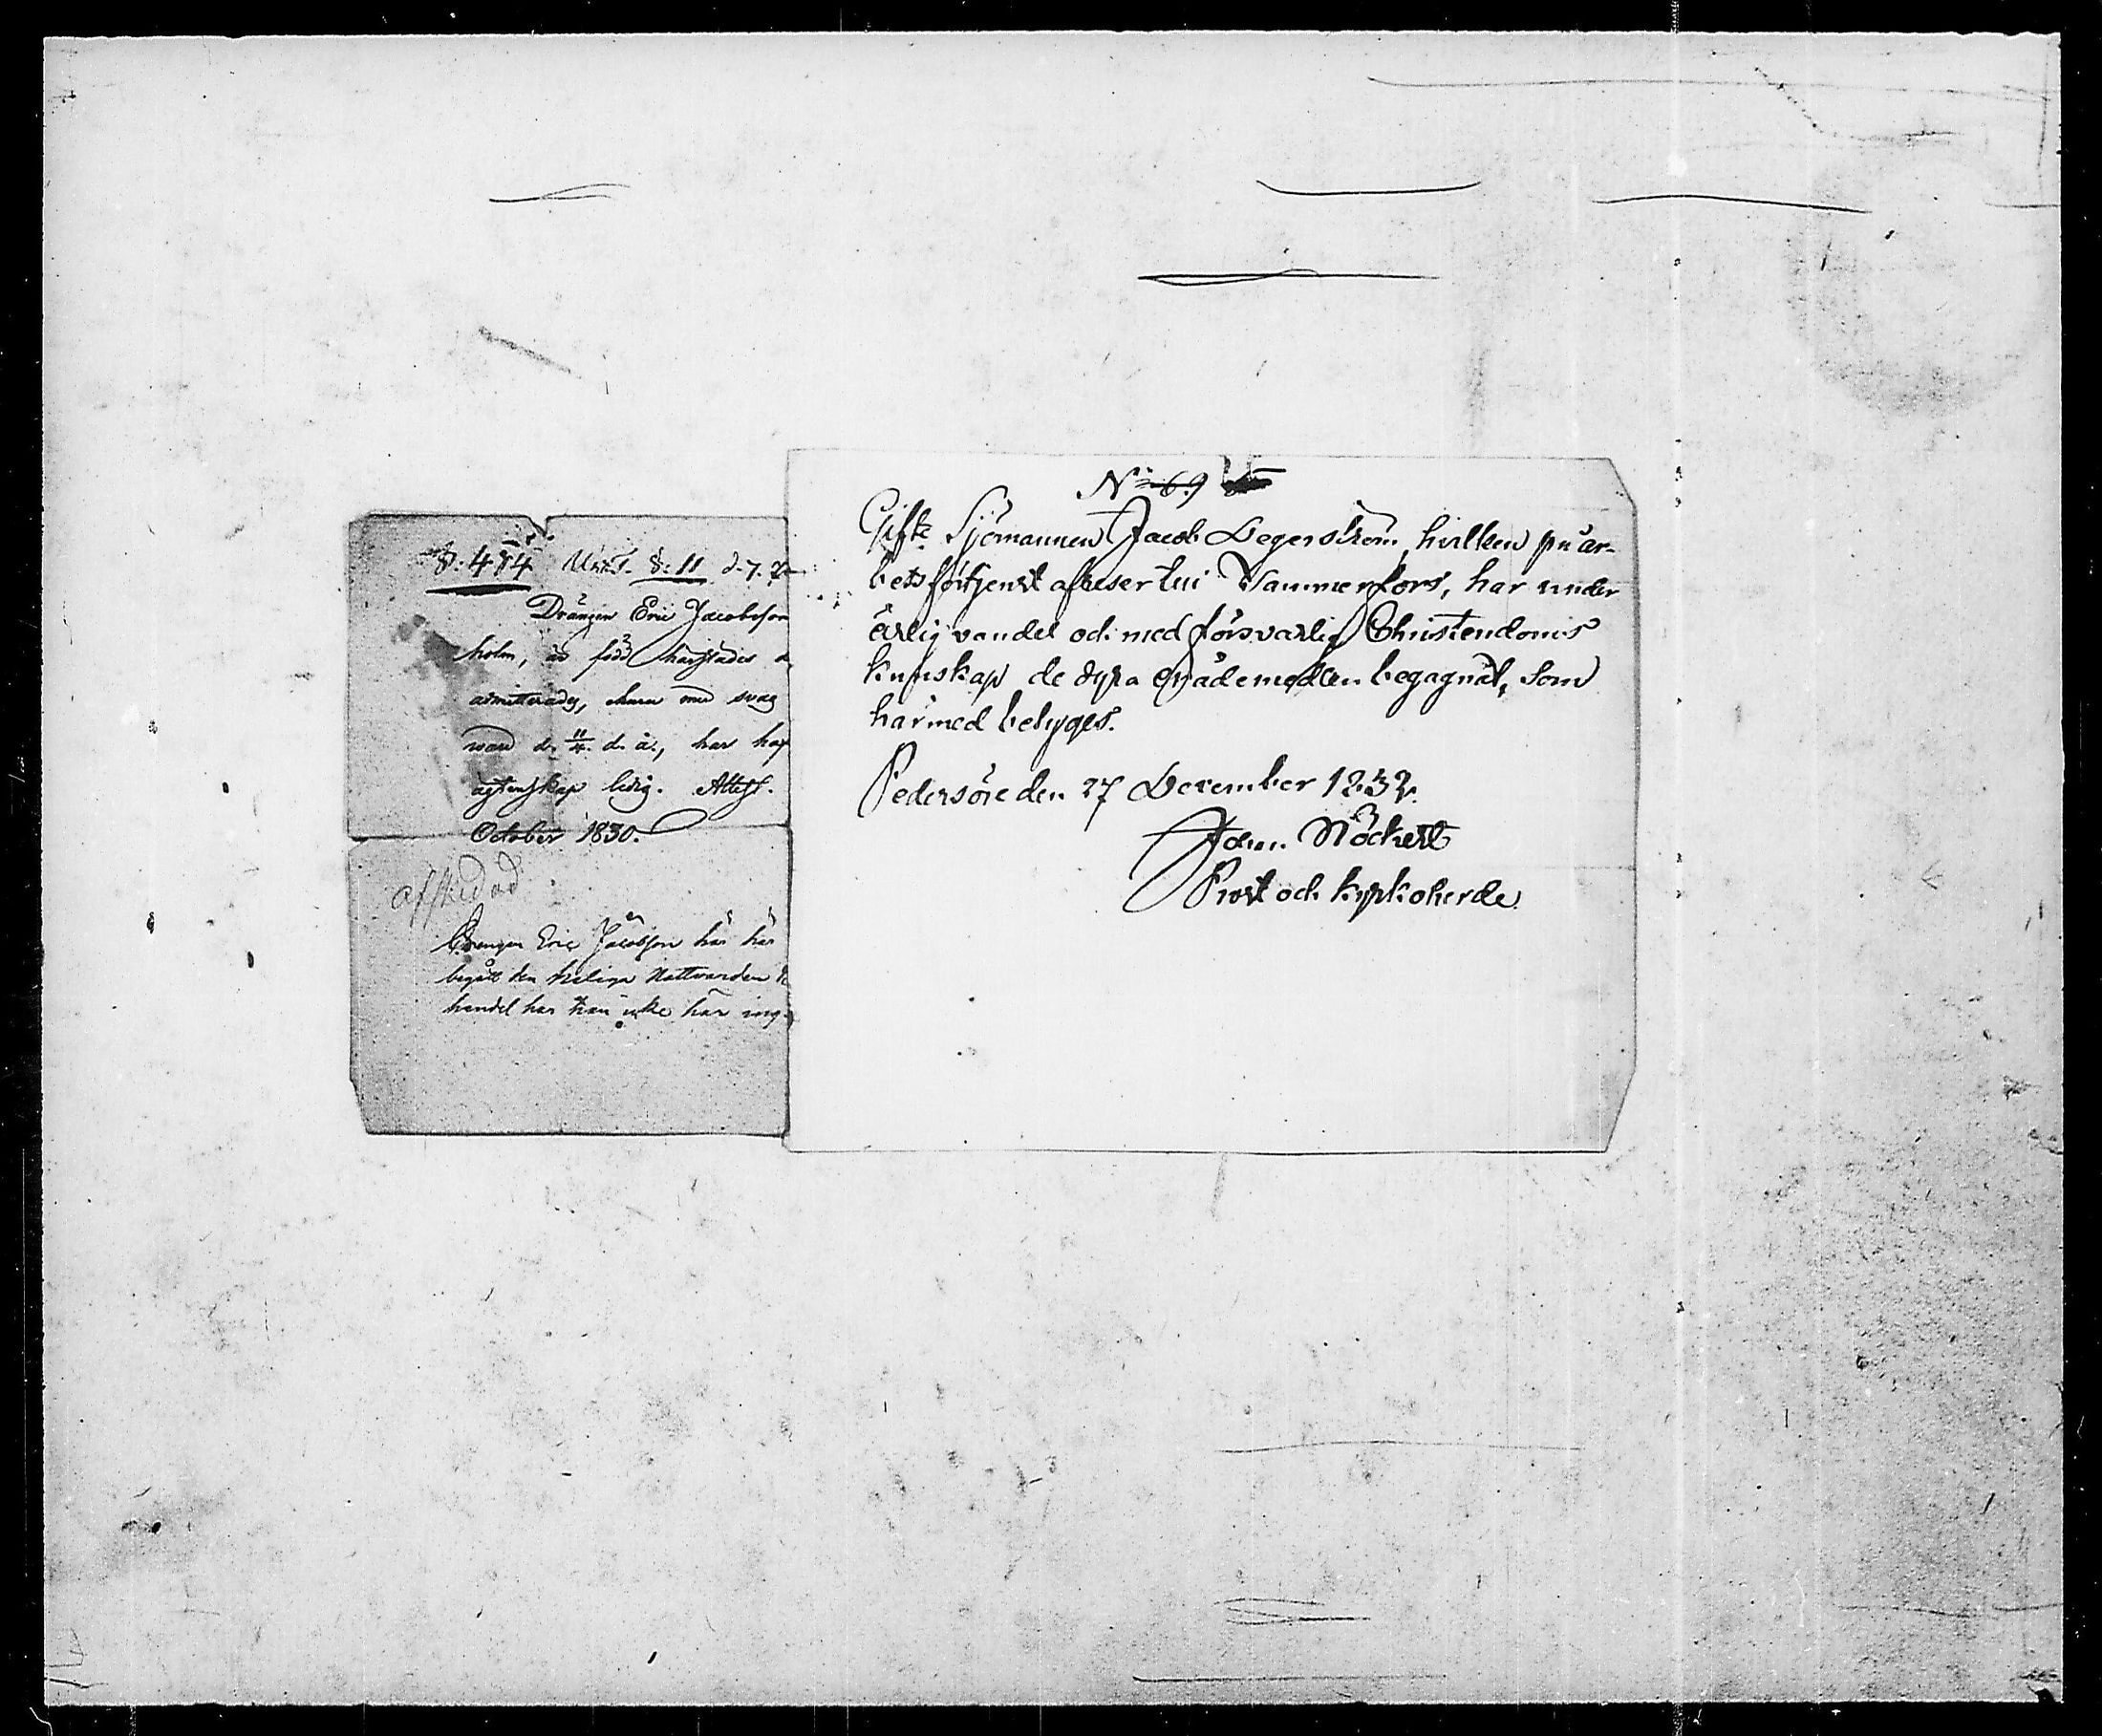 S. 484 Utfl. S. 11 d. 7.
Drängen Eric Jacobsson
holm, är född härstädes
admitterades, med svag
d. 11/4. d. å., har haf
ägtenskap ledig. Attest.
October 1830.
afskedad
Drengen Eric Jacobsson har här
begått den heliga Nattvarden
handel har han icke här ing
No 69
Gifte Sjömannen Jacob Legerström, hvilken på ar-
betsförtjenst afreser till Tammerfors, har under
ärlig vandel och med försvarlig Christendoms
kunskap de dyra nådemedlen begagnat, som
härmed betyges.
Pedersöre den 27 December 1832.
Johan Möckert
Prost och kyrkoherde.